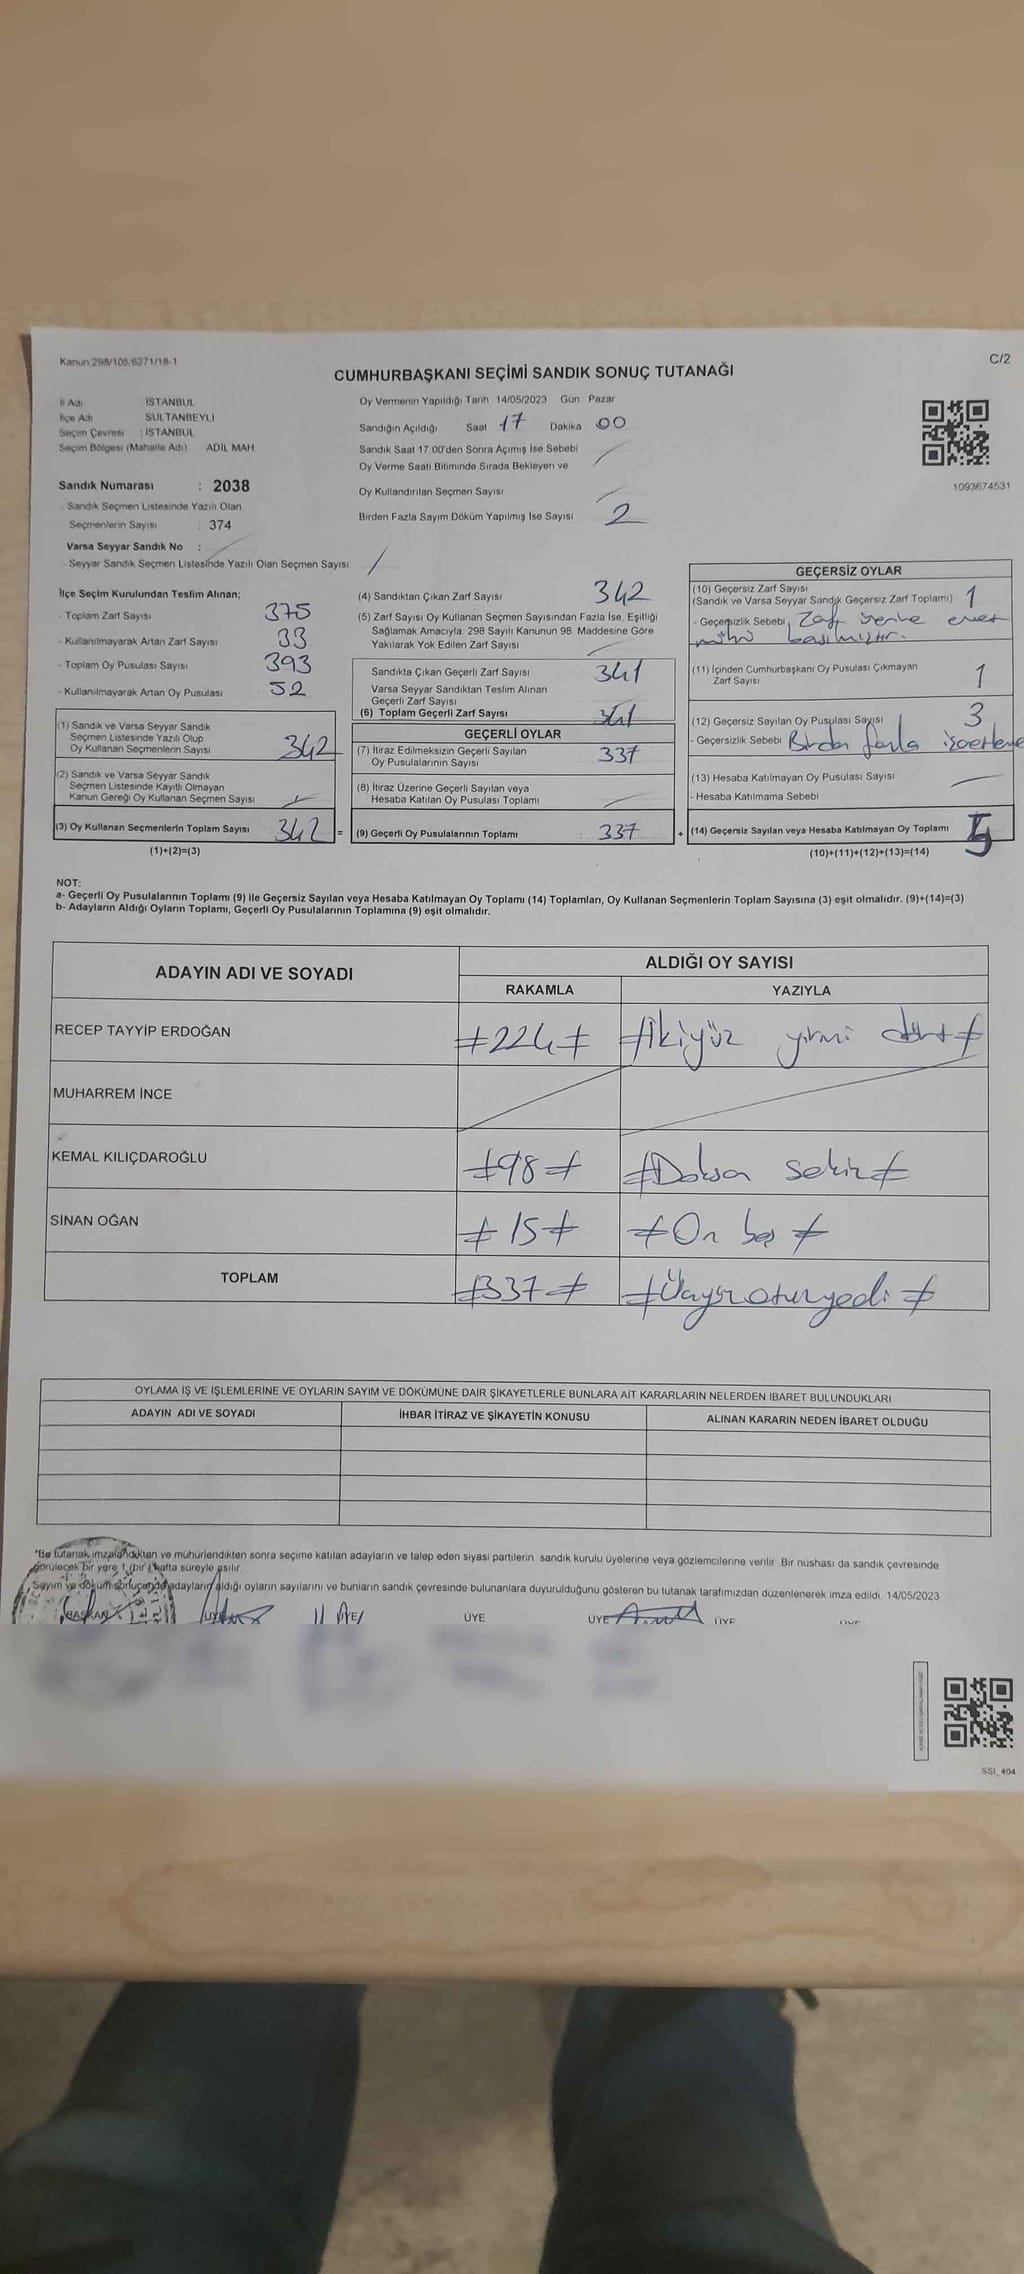 Kanun 298/105,6271/18-1
C/2
CUMHURBAŞKANI SEÇİMİ SANDIK SONUÇ TUTANAĞI
İl Adı İSTANBUL
İlçe Adı SULTANBEYLİ
Seçim Çevresi : İSTANBUL
Seçim Bölgesi (Mahalle Adı) ADİL MAH.
Sandık Numarası : 2038
- Sandık Seçmen Listesinde Yazılı Olan
Seçmenlerin Sayısı : 374
Varsa Seyyar Sandık No :
- Seyyar Sandık Seçmen Listesinde Yazılı Olan Seçmen Sayısı /
Oy Vermenin Yapıldığı Tarih 14/05/2023 Gün Pazar
Sandığın Açıldığı Saat 17 Dakika 00
Sandık Saat 17 00'den Sonra Açımış İse Sebebi
Oy Verme Saati Bitiminde Sırada Bekleyen ve
Oy Kullandırılan Seçmen Sayısı
Birden Fazla Sayım Döküm Yapılmış İse Sayısı 2
1093674531
İlçe Seçim Kurulundan Teslim Alınan;
- Toplam Zarf Sayısı 375
- Kullanılmayarak Artan Zarf Sayısı 33
- Toplam Oy Pusulası Sayısı 393
- Kullanılmayarak Artan Oy Pusulası 52
(1) Sandık ve Varsa Seyyar Sandık
Seçmen Listesinde Yazılı Olup
Oy Kullanan Seçmenlerin Sayısı 342
(2) Sandık ve Varsa Seyyar Sandık
Seçmen Listesinde Kayıtlı Olmayan
Kanun Gereği Oy Kullanan Seçmen Sayısı
(3) Oy Kullanan Seçmenlerin Toplam Sayısı 342 =
(1)+(2)=(3)
(4) Sandıktan Çıkan Zarf Sayısı 342
(5) Zarf Sayısı Oy Kullanan Seçmen Sayısından Fazla İse, Eşitliği
Sağlamak Amacıyla, 298 Sayılı Kanunun 98. Maddesine Göre
Yakılarak Yok Edilen Zarf Sayısı
Sandıkta Çıkan Geçerli Zarf Sayısı 341
Varsa Seyyar Sandıktan Teslim Alınan
Geçerli Zarf Sayısı
(6) Toplam Geçerli Zarf Sayısı 341
GEÇERLİ OYLAR
(7) İtiraz Edilmeksizin Geçerli Sayılan
Oy Pusulalarının Sayısı 337
(8) İtiraz Üzerine Geçerli Sayılan veya
Hesaba Katılan Oy Pusulası Toplamı
(9) Geçerli Oy Pusulalarının Toplamı 337 +
GEÇERSİZ OYLAR
(10) Geçersiz Zarf Sayısı
(Sandık ve Varsa Seyyar Sandık Geçersiz Zarf Toplamı) 1
- Geçersizlik Sebebi Zarf üerine evet
mührü basılmıştır.
(11) İçinden Cumhurbaşkanı Oy Pusulası Çıkmayan
Zarf Sayısı 1
(12) Geçersiz Sayılan Oy Pusulası Sayısı 3
- Geçersizlik Sebebi Birden fazla işaretleme
(13) Hesaba Katılmayan Oy Pusulası Sayısı
- Hesaba Katılmama Sebebi
(14) Geçersiz Sayılan veya Hesaba Katılmayan Oy Toplamı 5
(10)+(11)+(12)+(13)=(14)
NOT:
a- Geçerli Oy Pusulalarının Toplamı (9) ile Geçersiz Sayılan veya Hesaba Katılmayan Oy Toplamı (14) Toplamları, Oy Kullanan Seçmenlerin Toplam Sayısına (3) eşit olmalıdır. (9)+(14)=(3)
b- Adayların Aldığı Oyların Toplamı, Geçerli Oy Pusulalarının Toplamına (9) eşit olmalıdır.
ADAYIN ADI VE SOYADI
ALDIĞI OY SAYISI
RAKAMLA YAZIYLA
RECEP TAYYİP ERDOĞAN ≠224≠ ≠İkiyüz yirmi dört≠
MUHARREM İNCE
KEMAL KILIÇDAROĞLU ≠98≠ ≠Doksan sekiz≠
SİNAN OĞAN ≠15≠ ≠On beş≠
TOPLAM ≠337≠ ≠Üçyüzotuzyedi≠
OYLAMA İŞ VE İŞLEMLERİNE VE OYLARIN SAYIM VE DÖKÜMÜNE DAİR ŞİKAYETLERLE BUNLARA AİT KARARLARIN NELERDEN İBARET BULUNDUKLARI
ADAYIN ADI VE SOYADI İHBAR İTİRAZ VE ŞİKAYETİN KONUSU ALINAN KARARIN NEDEN İBARET OLDUĞU
*Bu tutanak imzalandıktan ve mühürlendikten sonra seçime katılan adayların ve talep eden siyasi partilerin sandık kurulu üyelerine veya gözlemcilerine verilir. Bir nüshası da sandık çevresinde
görülecek bir yere 1 (bir) hafta süreyle asılır.
Sayım ve döküm sonucunda adayların aldığı oyların sayılarını ve bunların sandık çevresinde bulunanlara duyurulduğunu gösteren bu tutanak tarafımızdan düzenlenerek imza edildi. 14/05/2023
BAŞKAN ÜYE ÜYE ÜYE ÜYE ÜYE ÜYE
SSI_404